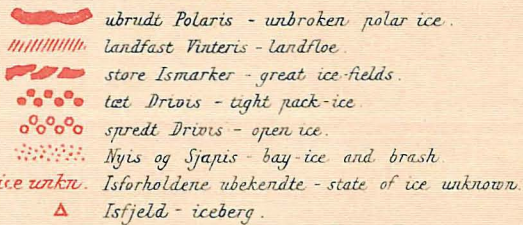 ubrudt Polaris - unbroken polar ice.
landfast Vinteris - landfloe.
store Ismarker - great ice-fields.
tæt Drivis - tight pack-ice.
spredt Drivis - open ice.
Nyis og Sjapis - bay-ice and brash
ice unkn. Isforholdene ubekendte - state of ice unknown.
Isfjeld - iceberg.